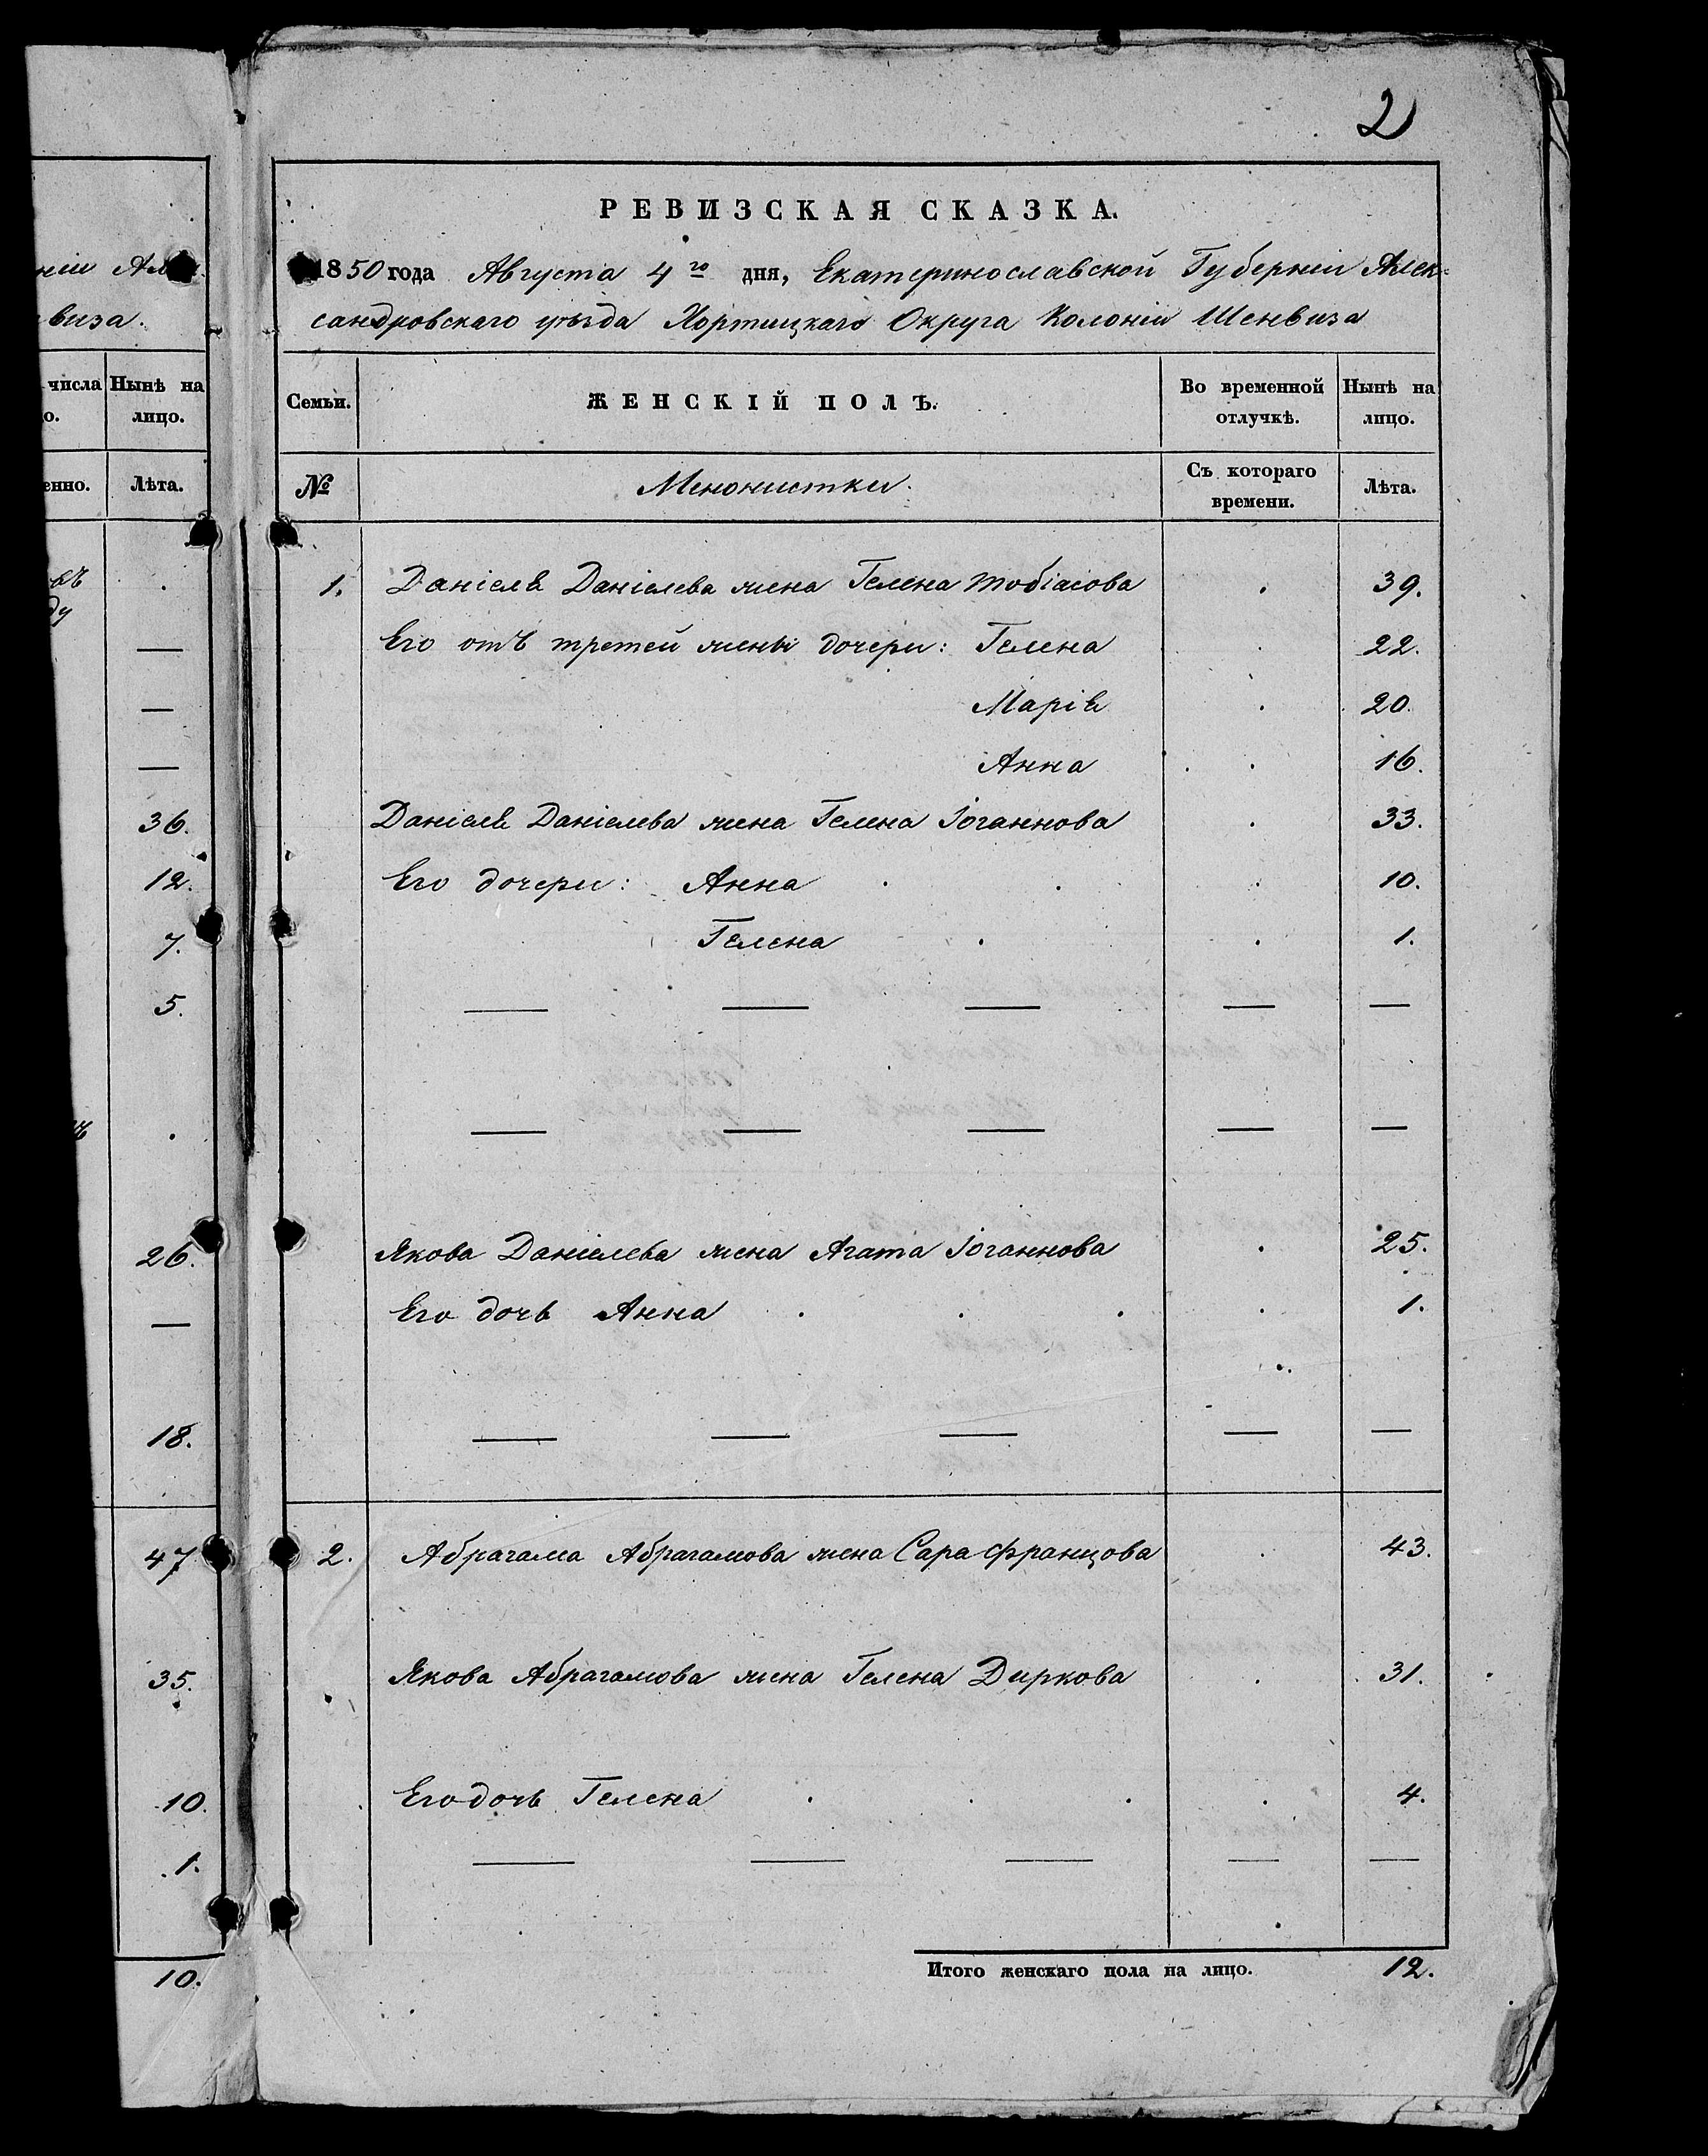 2
РЕВИЗСКАЯ СКАЗКА.
1850 года Августа 4го дня, Екатеринославской Губерніи Алек=
сандровскаго уѣзда Хортицкаго Округа Колоніи Шенвиза
Семьи. ЖЕНСКІЙ ПОЛЪ. Во временной отлучкѣ. Нынѣ на лицо.
№ Менонистки. Съ котораго времени. Лѣта.
1. Даніеля Даніелева жена Гелена Тобіасова 39.
Его отъ третей жены дочери: Гелена 22.
Марія 20.
Анна 16.
Даніеля Даніелева жена Гелена Іоганнова 33.
Его дочери: Анна 10.
Гелена 1.
Якова Даніелева жена Агата Іоганнова 25.
Его дочь Анна 1.
2. Абрагама Абрагамова жена Сара Францова 43.
Якова Абрагамова жена Гелена Диркова 31.
Его дочь Гелена 4.
Итого женскаго пола на лицо. 12.
виза.
числа Нынѣ на
лицо.
Лѣта.
36.
12.
7.
5.
26.
18.
47
35.
10.
1.
10.